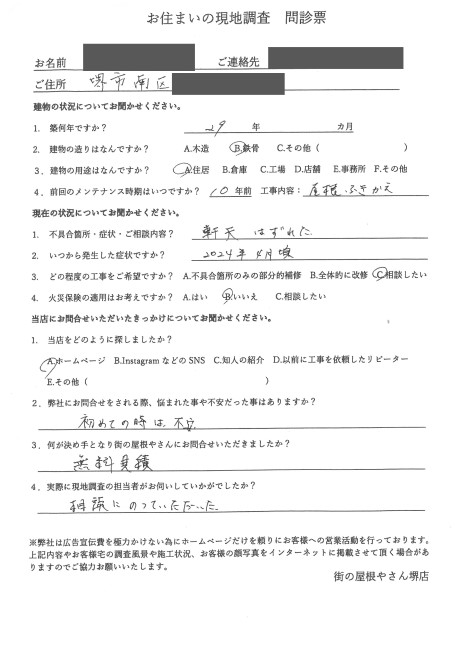 お住まいの現地調査 問診票
お名前 ご連絡先
ご住所 堺市南区
建物の状況についてお聞かせください。
1. 築何年ですか? 29 年 カ月
2. 建物の造りはなんですか? A.木造 B.鉄骨 C.その他( )
3. 建物の用途はなんですか? A.住居 B.倉庫 C.工場 D.店舗 E.事務所 F.その他
4. 前回のメンテナンス時期はいつですか? 10 年前 工事内容: 屋根ふきかえ
現在の状況についてお聞かせください。
1. 不具合箇所・症状・ご相談内容? 軒天 はずれた
2. いつから発生した症状ですか? 2024年4月頃
3. どの程度の工事をご希望ですか? A.不具合箇所のみの部分的補修 B.全体的に改修 C.相談したい
4. 火災保険の適用はお考えですか? A.はい B.いいえ C.相談したい
当店にお問合せいただいたきっかけについてお聞かせください。
1. 当店をどのように探しましたか?
A.ホームページ B.InstagramなどのSNS C.知人の紹介 D.以前に工事を依頼したリピーター
E.その他( )
2. 弊社にお問合せをされる際、悩まれた事や不安だった事はありますか?
初めての時は不安
3. 何が決め手となり街の屋根やさんにお問合せいただきましたか?
無料見積
4. 実際に現地調査の担当者がお伺いしていかがでしたか?
相談にのっていただいた
※弊社は広告宣伝費を極力かけない為にホームページだけを頼りにお客様への営業活動を行っております。
上記内容やお客様宅の調査風景や施工状況、お客様の顔写真をインターネットに掲載させて頂く場合があ
りますのでご協力お願いいたします。
街の屋根やさん堺店